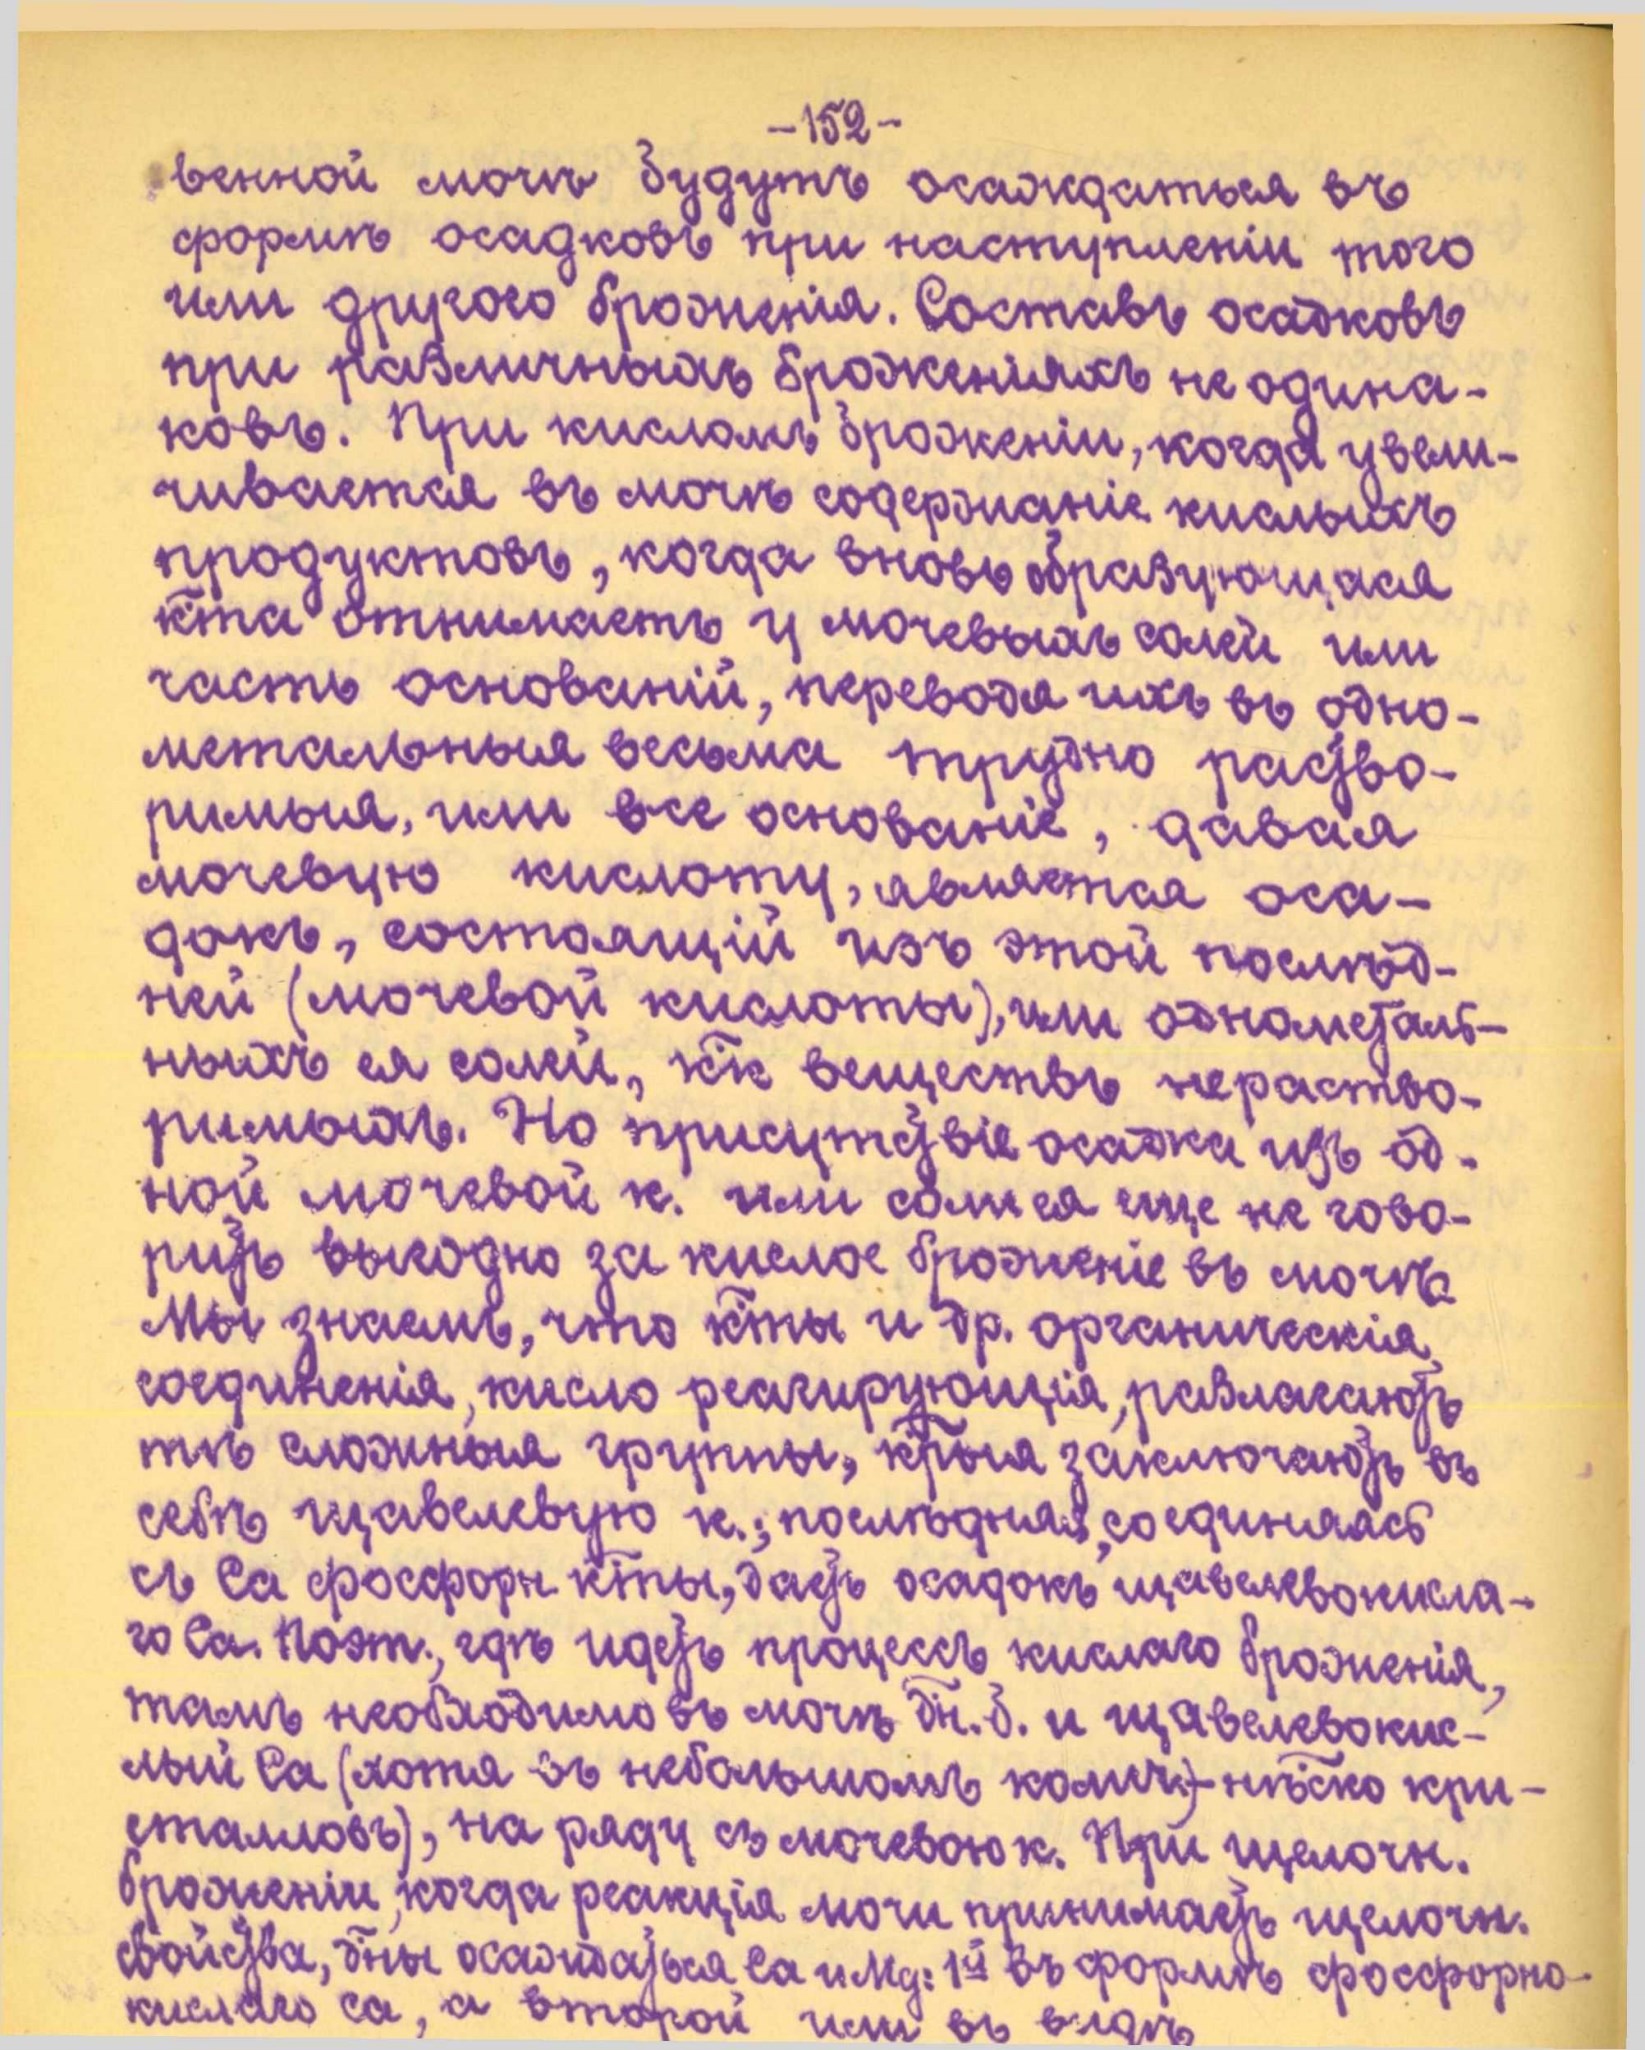 -152-
венной мочѣ будутъ осаждаться въ
формѣ осадковъ при наступленіи того
или другого броженія. Составъ осадковъ
при различныхъ броженіяхъ не одина-
ковъ. При кисломъ броженіи, когда увели-
чивается въ мочѣ содержаніе кислыхъ
продуктовъ, когда вновь образующаяся
к̅та отнимаетъ у мочевыхъ солей или
часть основаній, переводя ихъ въ одно-
метальныя весьма трудно раство-
римыя, или все основаніе, давая
мочевую кислоту, является оса-
докъ, состоящій изъ этой послѣд-
ней (мочевой кислоты), или однометаль-
ныхъ ея солей, к̅к веществъ нераство-
римыхъ. Но присутствіе осадка изъ од-
ной мочевой к. или соли ея еще не гово-
ритъ выгодно за кислое броженіе въ мочѣ.
Мы знаемъ, что к̅ты и др. органическія
соединенія, кисло реагирующія, разлагаютъ
тѣ сложныя группы, к̅рыя заключаютъ въ
себѣ щавелевую к.; послѣдняя, соединяясь
съ Са фосфорн к̅ты, даетъ осадокъ щавелевокисла-
го Са. Поэт., гдѣ идетъ процессъ кислаго броженія,
тамъ необходимо въ мочѣ д̅н. б. и щавелевокис-
лый Са (хотя въ небольшомъ колич.) - нѣ̅ско кри-
сталловъ), на ряду съ мочевою к. При щелочн.
броженіи, когда реакція мочи принимаетъ щелочн.
свойства, д̅ны осаждаться Са и Mg: 1й въ формѣ фосфорно-
кислаго Са, а второй или въ видѣ